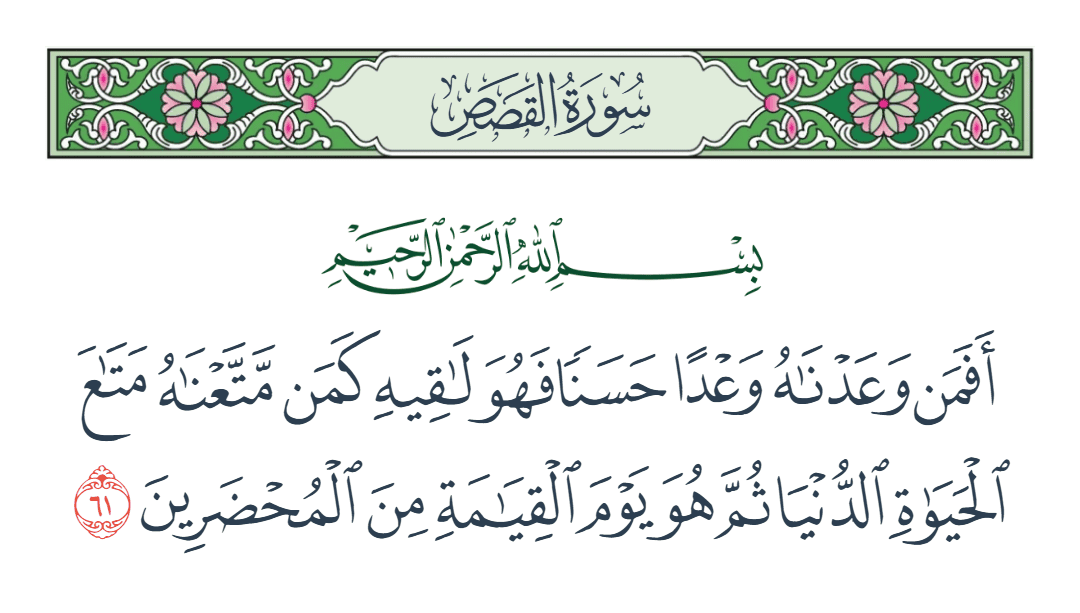 سُورَةُ القَصَصِ
بِسْمِ ٱللَّهِ ٱلرَّحْمَٰنِ ٱلرَّحِيمِ
أَفَمَن وَعَدْنَٰهُ وَعْدًا حَسَنًا فَهُوَ لَٰقِيهِ كَمَن مَّتَّعْنَٰهُ مَتَٰعَ
ٱلْحَيَوٰةِ ٱلدُّنْيَا ثُمَّ هُوَ يَوْمَ ٱلْقِيَٰمَةِ مِنَ ٱلْمُحْضَرِينَ ٦١